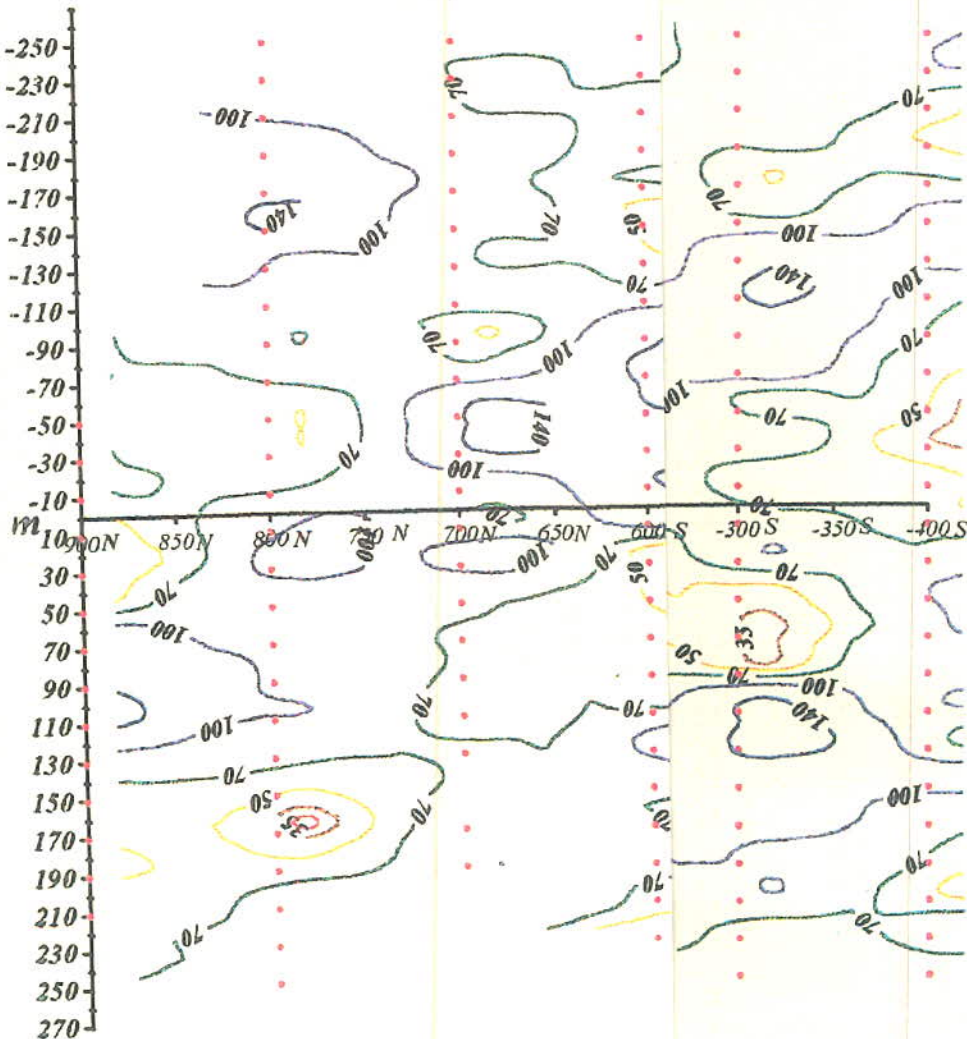 -250
-230
-210
-190
-170
-150
-130
-110
-90
-70
-50
-30
-10
m
10
30
50
70
90
110
130
150
170
190
210
230
250
270
900N 850N 800N 750N 700N 650N 600 S -300 S -350 S -400 S
70
70
100
70
140
70
50
100
100
70
140
100
70
100
100
70
140
70
50
70
100
70
70
100
100
70
50
70
35
100
50
70
100
70
100
140
70
50
35
70
70
100
70
70
70
70